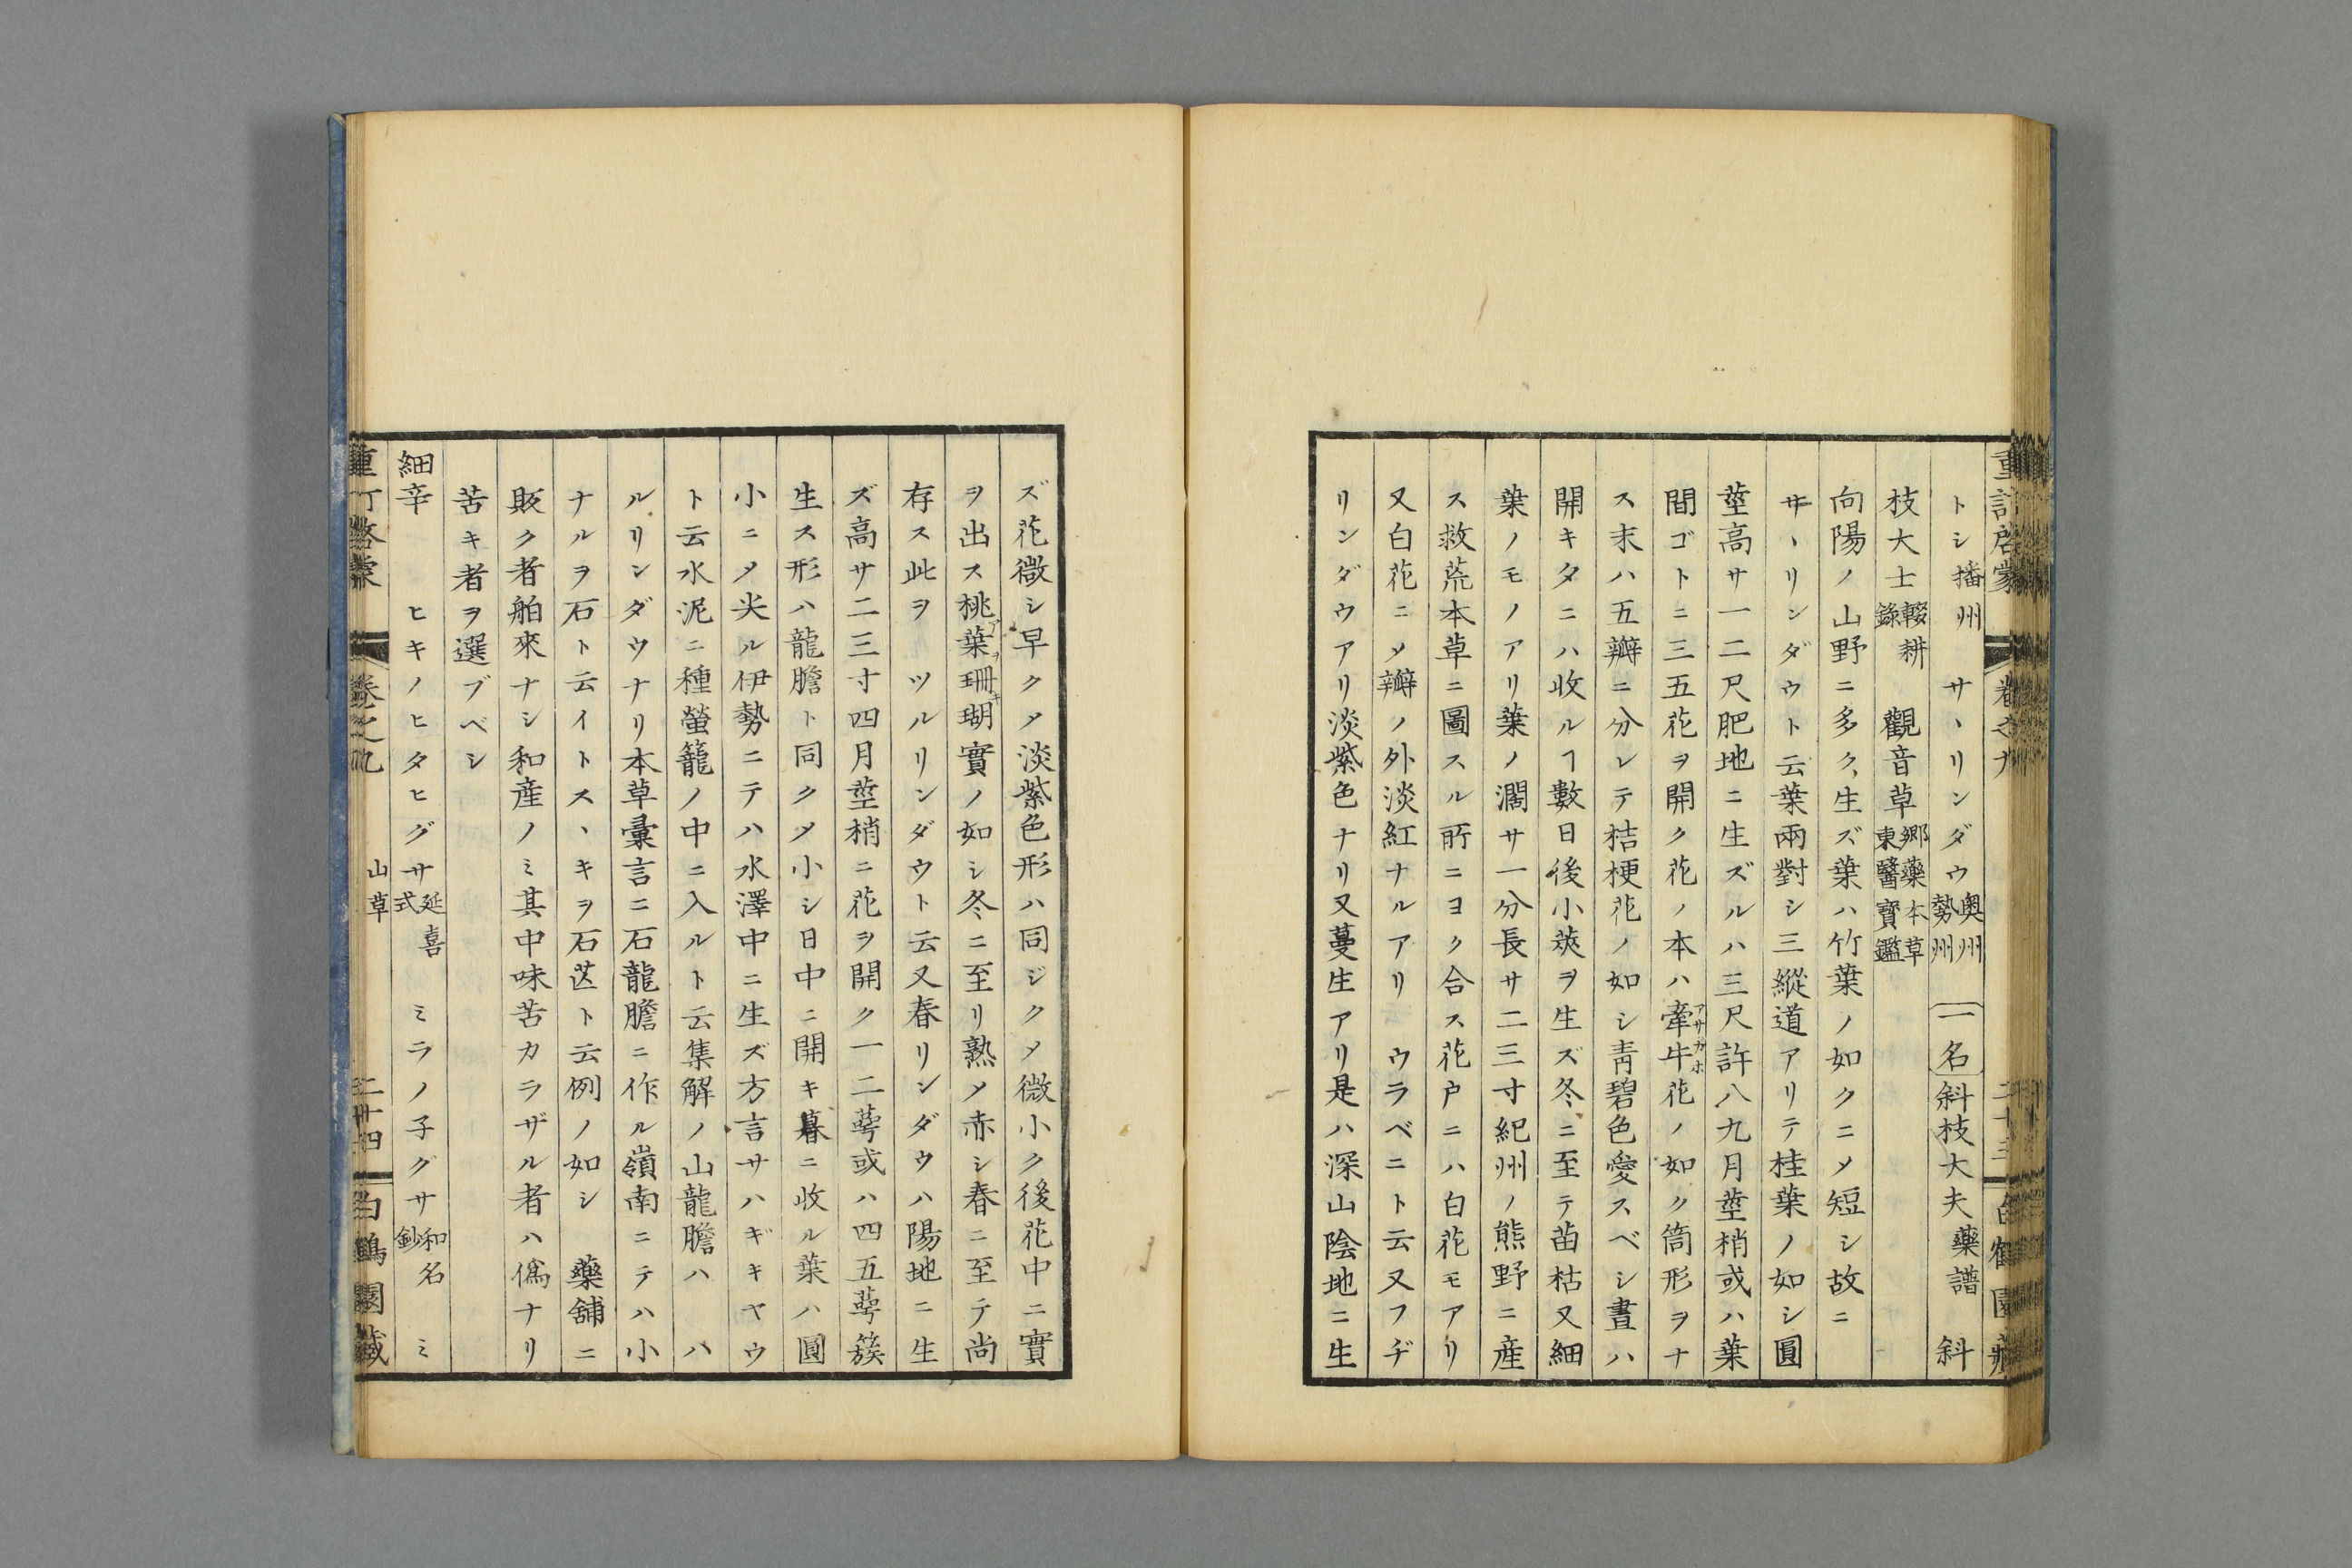 重訂啓蒙 卷之九 二十三 白鶴園藏
トシ播州 サヽリンダウ奥州勢州 一名斜枝大夫藥譜 斜
枝大士輟耕錄 觀音草鄉藥本草東醫寶鑑
向陽ノ山野ニ多ク生ズ葉ハ竹葉ノ如クニメ短シ故ニ
サヽリンダウト云葉兩對シ三縱道アリテ桂葉ノ如シ圓
莖高サ一二尺肥地ニ生ズルハ三尺許八九月莖梢或ハ葉
間ゴトニ三五花ヲ開ク花ノ本ハ牽牛花アサガホノ如ク筒形ヲナ
ス末ハ五瓣ニ分レテ桔梗花ノ如シ靑碧色愛スベシ晝ハ
開キタニハ收ルヿ數日後小莢ヲ生ズ冬ニ至テ苗枯又細
葉ノモノアリ葉ノ濶サ一分長サ二三寸紀州ノ熊野ニ産
ス救荒本草ニ圖スル所ニヨク合ス花戶ニハ白花モアリ
又白花ニメ瓣ノ外淡紅ナルアリ ウラベニト云又フヂ
リンダウアリ淡紫色ナリ又蔓生アリ是ハ深山陰地ニ生
ズ花微シ早クメ淡紫色形ハ同ジクメ微小ク後花中ニ實
ヲ出ス桃葉珊瑚アヲキ實ノ如シ冬ニ至リ熟メ赤シ春ニ至テ尚
存ス此ヲ ツルリンダウト云又春リンダウハ陽地ニ生
ズ高サ二三寸四月莖梢ニ花ヲ開ク一二萼或ハ四五萼簇
生ス形ハ龍膽ト同クメ小シ日中ニ開キ暮ニ收ル葉ハ圓
小ニメ尖ル伊勢ニテハ水澤中ニ生ズ方言サハギキヤウ
ト云水泥ニ種螢籠ノ中ニ入ルト云集解ノ山龍膽ハ ハ
ルリンダウナリ本草彙言ニ石龍膽ニ作ル嶺南ニテハ小
ナルヲ石ト云イトスヽキヲ石芒ト云例ノ如シ 藥舖ニ
販ク者舶來ナシ和産ノミ其中味苦カラザル者ハ僞ナリ
苦キ者ヲ選ブベシ
細辛 ヒキノヒタヒグサ延喜式 ミラノ子グサ和名鈔 ミ
重訂啓蒙 卷之九 山草 二十四 白鶴園藏